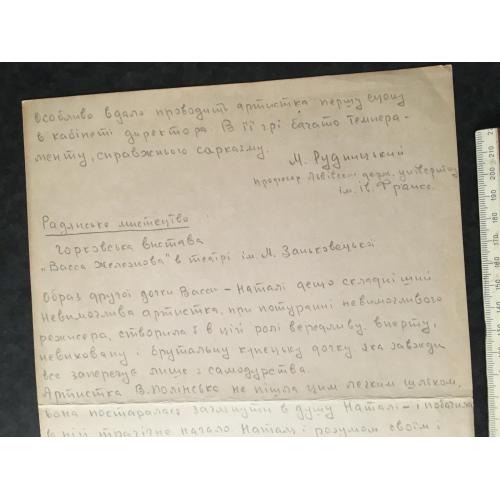 особливо вдало проводить артистка першу сцену
в кабінеті директора. В її грі багато темпера-
менту, справжнього сарказму.
М. Рудницький
професор Львівськ. держ. університу
ім. Ів. Франка.
Радянське мистецтво
Горковська вистава
„Васса Железнова" в театрі ім. М. Заньковецької
Образ другої дочки Васси - Наталі дещо складніший
Невимоглива артистка, при потуранні невимогливого
режисера, створила б в цій ролі вередливу, вперту,
невиховану і брутальну купецьку дочку яка завжди
все заперечує лише з самодурства.
Артистка В. Полінська не пішла цим легким шляхом,
вона постаралась заглянути в душу Наталі - і побачила
в ній трагічне начало. Наталя і розумом своїм і